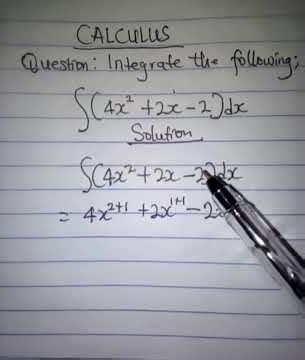 CALCULUS
Question: Integrate the following;
∫(4x² + 2x - 2)dx
Solution
∫(4x² + 2x - 2)dx
= 4x²⁺¹ + 2x¹⁺¹ - 2